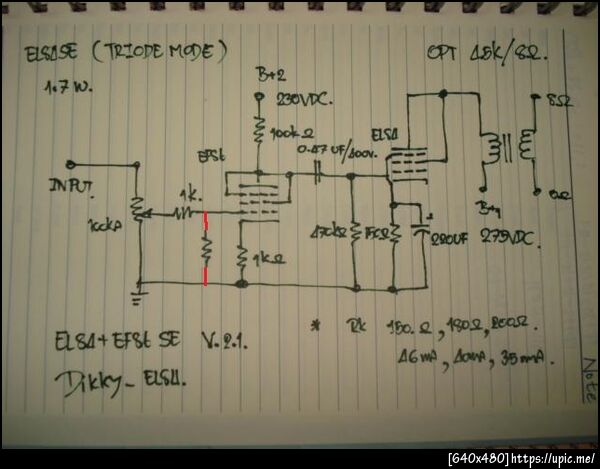 EL84SE (TRIODE MODE)
OPT 4.5K/8Ω.
1.7 W.
B+2
230VDC.
8Ω
100kΩ
EL84
0.47UF/400V.
EF86
INPUT
1k.
100kA
0Ω
B+1
275VDC.
470kΩ
150Ω
220UF
1kΩ
EL84 + EF86 SE V.2.1.
* Rk 150Ω, 180Ω, 200Ω.
46mA, 40mA, 35mA.
Dikky_EL84.
Note
[640x480]https://upic.me/